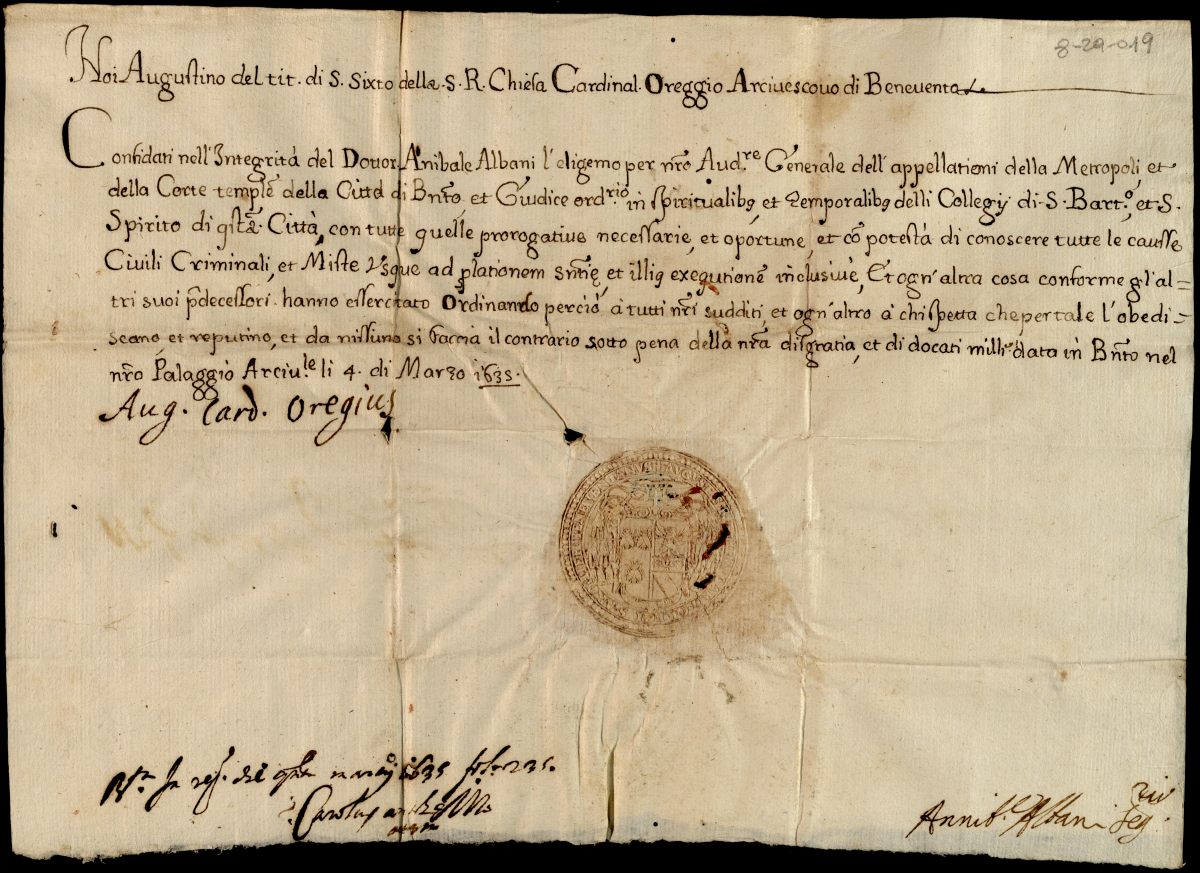 8-29-019
Noi Augustino del tit. di S. Sixto della. S. R. Chiesa Cardinal. Oreggio Arciuescouo di Beneuento
Confidati nell'Integrità del Dottor. Anibale Albani l'eligemo per nr̃o Aud.re Generale dell'appellationi della Metropoli, et
della Corte templẽ della Città di Bnt̃o, et Giudice ord.rio in spiritualibꝫ, et temporalibꝫ delli Collegij di. S. Bart.o, et S.
Spirito di qst̃a Città, con tutte quelle prorogatiue necessarie, et oportune, et cõ potestà di conoscere tutte le causse
Ciuili Criminali, et Miste Vsque ad plationem snt̃ię, et illiꝫ exequtionẽ inclusiuè, Et ogn'altra cosa conforme gl'al=
tri suoi pd̃ecessori. hanno essercitato Ordinando perciò à tutti nr̃i sudditi, et ogn'altro à chi spetta che per tale l'obedi=
scano, et reputino, et da nissuno si faccia il contrario sotto pena della nr̃a disgratia, et di docati milli data in Bnt̃o nel
nr̃o Palaggio Arciu.le li 4. di Marzo 1635.
Aug. Card. Oregius
1635 fol. 235.
Carolus
Annib. Albani